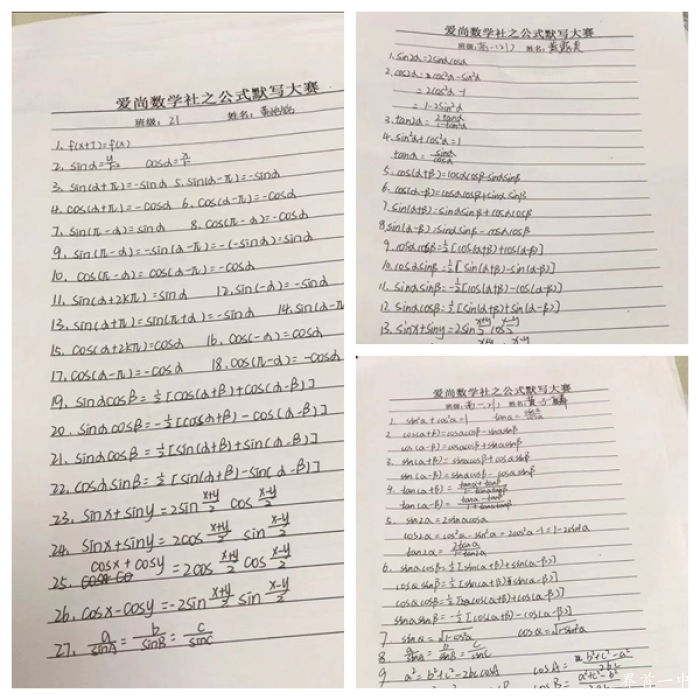 爱尚数学社之公式默写大赛
班级：21 姓名：
1. f(x+T)=f(x)
2. sinα=y/r cosα=x/r
3. sin(α+π)=-sinα 5. sin(α-π)=-sinα
4. cos(α+π)=-cosα 6. cos(α-π)=-cosα
7. sin(π-α)=sinα 8. cos(π-α)=-cosα
9. sin(π-α)=-sin(α-π)=-(-sinα)=sinα
10. cos(π-α)=cos(α-π)=-cosα
11. sin(α+2kπ)=sinα 12. sin(-α)=-sinα
13. sin(α+π)=sin(π+α)=-sinα 14. sin(α-π
15. cos(α+2kπ)=cosα 16. cos(-α)=cosα
17. cos(α-π)=-cosα 18. cos(π-α)=-cosα
19. sinαcosβ=½[cos(α+β)+cos(α-β)]
20. sinαcosβ=-½[cosα+β)-cos(α-β)]
21. sinαcosβ=½[sin(α+β)+sin(α-β)]
22. cosαsinβ=½[sin(α+β)-sin(α-β)]
23. sinx+siny=2sin (x+y)/2 cos (x-y)/2
24. sinx+siny=2cos (x+y)/2 sin (x-y)/2
25. cosx+cosy=2cos (x+y)/2 cos (x-y)/2
26. cosx-cosy=-2sin (x+y)/2 sin (x-y)/2
27. a/sinA=b/sinB=c/sinC
爱尚数学社之公式默写大赛
班级：高一(21) 姓名：
1. sin2α=2sinαcosα
2. cos2α=cos²α-sin²α
=2cos²α-1
=1-2sin²α
3. tan2α=2tanα/1-tan²α
4. sin²α+cos²α=1
tanα=sinα/cosα
5. cos(α+β)=cosαcosβ-sinαsinβ
6. cos(α-β)=cosαcosβ+sinαsinβ
7. sin(α+β)=sinαsinβ+cosαcosβ
8. sin(α-β)=sinαsinβ-cosαcosβ
9. cosαcosβ=½[cos(α+β)+cos(α-β)]
10. cosαsinβ=½[sin(α+β)-sin(α-β)]
11. sinαsinβ=-½[cos(α+β)-cos(α-β)]
12. sinαcosβ=½[sin(α+β)+sin(α-β)]
13. sinx+siny=2sin (x+y)/2 cos (x-y)/2
爱尚数学社之公式默写大赛
班级：高一(21) 姓名：
1. sin²α+cos²α=1 tanα=
2. cos(α+β)=cosαcosβ-sinαsinβ
cos(α-β)=cosαcosβ+sinαsinβ
3. sin(α+β)=sinαcosβ+cosαsinβ
sin(α-β)=sinαcosβ-cosαsinβ
4. tan(α+β)=tanα+tanβ/1-tanαtanβ
tan(α-β)=tanα-tanβ/1+tanαtanβ
5. sin2α=2sinαcosα
cos2α=cos²α-sin²α=2cos²α-1=1-2sin²α
tan2α=2tanα/1-tan²α
6. sinαcosβ=½[sin(α+β)+sin(α-β)]
cosαsinβ=½[sin(α+β)-sin(α-β)]
cosαcosβ=½[cos(α+β)+cos(α-β)]
sinαsinβ=-½[cos(α+β)-cos(α-β)]
7 sinα=√1-cos²α cosα=√1-sin²α
8 a/sinA=b/sinB=c/sinC
9 a²=b²+c²-2bccosA cosA=b²+c²-a²/2bc
界首一中